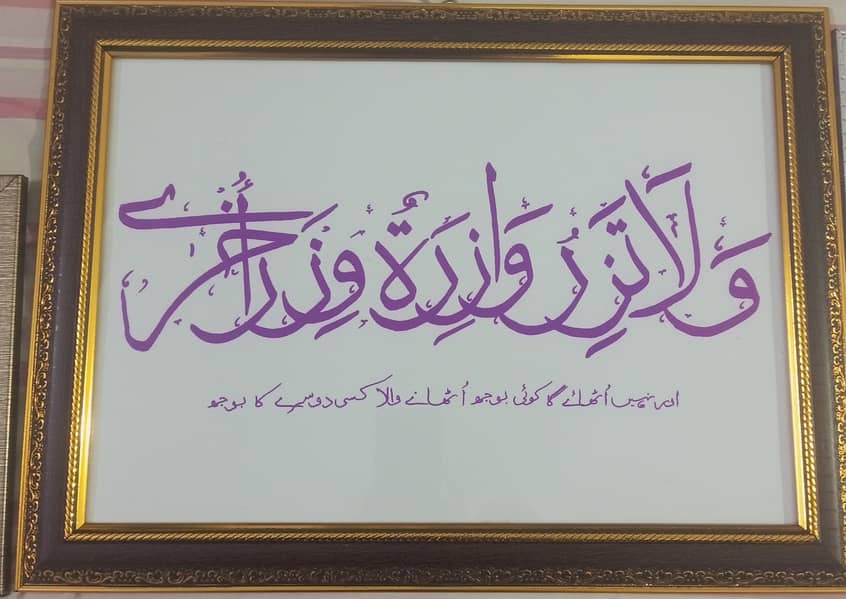 وَلَا تَزِرُ وَازِرَةٌ وِزْرَ أُخْرَىٰ
اور نہیں اُٹھائے گا کوئی بوجھ اُٹھانے والا کسی دوسرے کا بوجھ